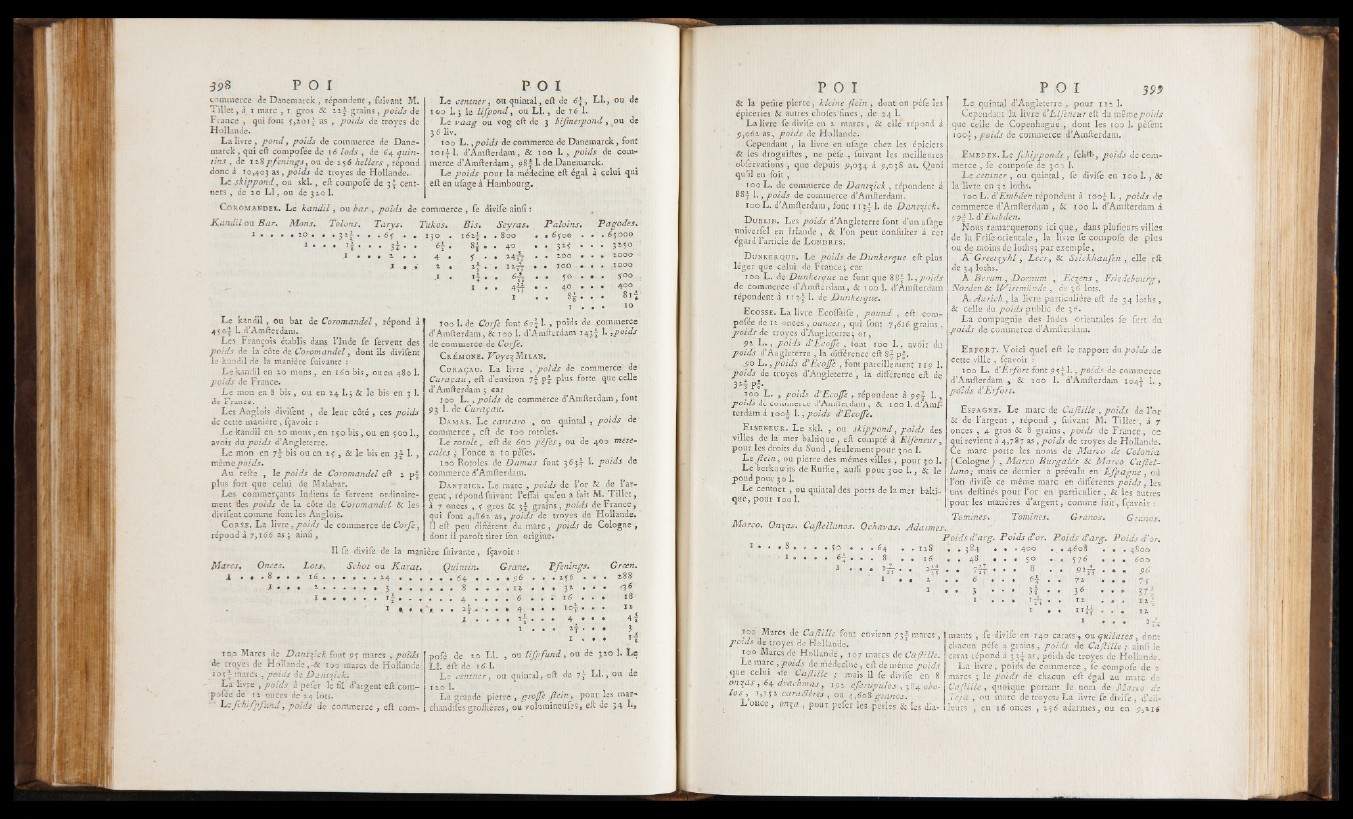 398 POI
commerce de Danemarck, répondent, suivant M.
Tillet, à 1 marc, 1 gros & 22½ grains, poids de
France, qui font 5,201½ as, poids de troyes de
Hollande.
La livre, pond, poids de commerce de Dane-
marck, qui est composée de 16 lods, de 64 quin-
tins, de 128 pfenings, ou de 256 hellers, répond
donc à 10,403 as, poids de troyes de Hollande.
Le skippond, ou skl., est composé de 3⅕ cent-
ners, de 20 Ll, ou de 320 l.
POI
Le centner, ou quintal, est de 6¼, Ll., ou de
100 l. ; le lispond, ou Ll., de 16 l.
Le vaag ou vog est de 3 bismerpond, ou de
36 liv.
100 L., poids de commerce de Danemarck, font
101¼ l. d'Amsterdam, & 100 l., poids de com-
merce d'Amsterdam, 98¾ l. de Danemarck.
Le poids pour la médecine est égal à celui qui
est en usage à Hambourg.
COROMANDEL. Le kandil, ou bar, poids de commerce, se divise ainsi :
Kandil ou Bar. Mons. Tolons. Tarys. Tukos. Bis. Seyras. Paloins. Pagodes.
1 . . . . 20 . . . 32½ . . . 65 . . 130 . 162½ . . 800 . . . 6500 . . . 65000
Le kandil, ou bar de Coromandel, répond à
450¼ l. d'Amsterdam.
Les François établis dans l'Inde se servent des
poids de la côte de Coromandel, dont ils divisent
le kandil de la manière suivante :
Le kandil en 20 mons, en 160 bis, ou en 480 l.
poids de France.
Le mon en 8 bis, ou en 24 l. ; & le bis en 3 l.
de France.
Les Anglois divisent, de leur côté, ces poids
de cette manière, sçavoir :
Le kandil en 20 mons, en 150 bis, ou en 500 l.,
avoir du poids d'Angleterre.
Le mon en 7½ bis ou en 25, & le bis en 3⅓ l.,
même poids.
Au reste, le poids de Coromandel est 2 p⁰⁄₀
plus fort que celui de Malabar.
Les commerçants Indiens se servent ordinaire-
ment des poids de la côte de Coromandel & les
divisent comme font les Anglois.
CORSE. La livre, poids de commerce de Corse,
répond à 7,166 as ; ainsi,
100 l. de Corse font 69¾ l., poids de commerce
d'Amsterdam, & 100 l. d'Amsterdam 143⅓ l., poids
de commerce de Corse.
CRÉMONE. Voyez MILAN.
CURAÇAU. La livre, poids de commerce de
Curaçau, est d'environ 7½ p⁰⁄₀ plus forte que celle
d'Amsterdam ; car
100 L., poids de commerce d'Amsterdam, font
93 l. de Curaçau.
DAMAS. Le cantaro, ou quintal, poids de
commerce, est de 100 rotoles.
Le rotole, est de 600 pèses, ou de 400 méte-
cales ; l'once à 10 pèses.
100 Rotoles de Damas font 363½ l. poids de
commerce d'Amsterdam.
DANTZICK. Le marc, poids de l'or & de l'ar-
gent, répond suivant l'essai qu'en a fait M. Tillet,
à 7 onces, 5 gros & 3½ grains, poids de France,
qui font 4,862 as, poids de troyes de Hollande.
Il est peu différent du marc, poids de Cologne,
dont il paroît tirer son origine.
Il se divise de la manière suivante, sçavoir :
Marcs. Onces. Lots. Schot ou Karat. Quintin. Grane. Pfenings. Græn.
1 . . . 8 . . . . 16 . . . . . . 24 . . . . . . 64 . . . . 96 . . . 256 . . . 288
1 . . . . 2 . . . . . . 3 . . . . . . 8 . . . . 12 . . . 32 . . . 36
1 . . . . . . 1½ . . . . . . 4 . . . . 6 . . . 16 . . . 18
100 Marcs de Dantzick font 95 marcs, poids
de troyes de Hollande, & 100 marcs de Hollande
105¼ marcs, poids de Dantzick.
La livre, poids à peser le fil d'argent est com-
posée de 12 onces de 24 lots.
Le schiffpfund, poids de commerce, est com-
posé de 20 Ll., ou lifspfund, ou de 320 l. Le
Ll. est de 16 l.
Le centner, ou quintal, est de 7½ Ll., ou de
120 l.
La grande pierre, grosse stein, pour les mar-
chandises grossières, ou volumineuses, est de 34 l.,
POI
& la petite pierre, kleine stein, dont on pèse les
épiceries & autres choses fines, de 24 l.
La livre se divise en 2 marcs, & elle répond à
9,062 as, poids de Hollande.
Cependant, la livre en usage chez les épiciers
& les droguistes, ne pèse, suivant les meilleures
observations, que depuis 9,034 à 9,038 as. Quoi
qu'il en soit,
100 L. de commerce de Dantzick, répondent à
88¼ l., poids de commerce d'Amsterdam.
100 L. d'Amsterdam, font 113½ l. de Dantzick.
DUBLIN. Les poids d'Angleterre sont d'un usage
universel en Irlande, & l'on peut consulter à cet
égard l'article de LONDRES.
DUNKERQUE. Le poids de Dunkerque est plus
léger que celui de France ; car
100 L. de Dunkerque ne font que 88¾ l., poids
de commerce d'Amsterdam, & 100 l. d'Amsterdam
répondent à 112½ l. de Dunkerque.
ECOSSE. La livre Ecossoise, pound, est com-
posée de 12 onces, ounces, qui font 7,616 grains,
poids de troyes d'Angleterre ; or,
92 L., poids d'Ecosse, font 100 l., avoir du
poids d'Angleterre, la différence est 8½ p⁰⁄₀.
90 L., poids d'Ecosse, font pareillement 119 l.
poids de troyes d'Angleterre, la différence est de
32½ p⁰⁄₀.
100 L., poids d'Ecosse, répondent à 99½ l.,
poids de commerce d'Amsterdam, & 100 l. d'Ams-
terdam à 100½ l., poids d'Ecosse.
ELSENEUR. Le skl., ou skippond, poids des
villes de la mer baltique, est compté à Elseneur,
pour les droits du Sund, seulement pour 300 l.
Le stein, ou pierre des mêmes villes, pour 30 l.
Le berkowits de Russie, aussi pour 300 l., & le
poud pour 30 l.
Le centner, ou quintal des ports de la mer balti-
que, pour 100 l.
POI 399
Le quintal d'Angleterre, pour 112 l.
Cependant la livre d'Elseneur est du même poids
que celle de Copenhague, dont les 100 l. pèsent
100¾, poids de commerce d'Amsterdam.
EMBDEN. Le schipponde, schlb, poids de com-
merce, se compose de 300 l.
Le centner, ou quintal, se divise en 100 l., &
la livre en 32 loths.
100 L. d'Embden répondent à 100½ l., poids de
commerce d'Amsterdam, & 100 l. d'Amsterdam à
99½ l. d'Embden.
Nous remarquerons ici que, dans plusieurs villes
de la Frise orientale, la livre se compose de plus
ou de moins de loths ; par exemple,
A Greetzyhl, Leer, & Stickhausen, elle est
de 34 loths.
A Berum, Dornum, Eezens, Friedebourg,
Norden & Witstmünde, de 36 lots.
A Aurich, la livre particulière est de 34 loths,
& celle du poids public de 36.
La compagnie des Indes orientales se sert du
poids de commerce d'Amsterdam.
ERFORT. Voici quel est le rapport du poids de
cette ville, sçavoir :
100 L. d'Erfort font 95½ l., poids de commerce
d'Amsterdam, & 100 l. d'Amsterdam 104¾ l.,
poids d'Erfort.
ESPAGNE. Le marc de Castille, poids de l'or
& de l'argent, répond, suivant M. Tillet, à 7
onces, 4 gros & 8 grains, poids de France, ce
qui revient à 4,787 as, poids de troyes de Hollande.
Ce marc porte les noms de Marco de Colonia
[Cologne], Marco Burgalés & Marco Castel-
lano ; mais ce dernier a prévalu en Espagne, où
l'on divise ce même marc en différents poids, les
uns destinés pour l'or en particulier, & les autres
pour les matières d'argent, comme suit, sçavoir :
Marco. Onzas. Castellanos. Ochavas. Adarmes. Tomines. Tomines. Granos. Granos.
Poids d'arg. Poids d'or. Poids d'arg. Poids d'or.
1 . . . 8 . . . . 50 . . . 64 . . 128 . . 384 . . . 400 . . 4608 . . . 4800
1 . . . . 6¼ . . . 8 . . . 16 . . 48 . . . 50 . . 576 . . . 600
100 Marcs de Castille font environ 93½ marcs,
poids de troyes de Hollande.
100 Marcs de Hollande, 107 marcs de Castille.
Le marc, poids de médecine, est de même poids
que celui de Castille ; mais il se divise en 8
onzas, 64 drachmas, 192 escrupulos, 384 obo-
los, 1,152 caractères, ou 4,608 granos.
L'once, onza, pour peser les perles & les dia-
mants, se divise en 140 carats, ou quilates, dont
chacun pèse 4 grains, poids de Castille ; ainsi le
carat répond à as, poids de troyes de Hollande.
La livre, poids de commerce, se compose de 2
marcs ; le poids de chacun est égal au marc de
Castille, quoique portant le nom de Marco de
Teja, ou marc de troyes. La livre se divise, d'ail-
leurs, en 16 onces, 256 adarmes, ou en 9,216